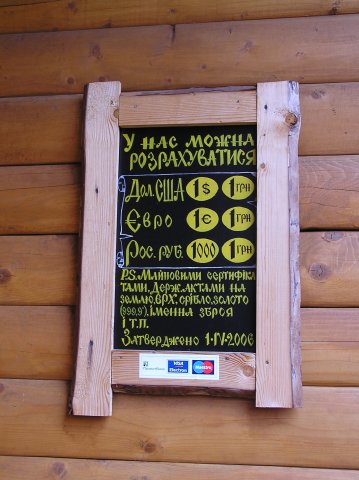 У нас можна
розрахуватися
Дол. США 1$ 1 грн
Євро 1€ 1 грн
Рос. руб. 1000 1 грн
P.S. Майновими сертифіка
тами, Держ. актами на
землю, ВРХ, срібло, золото
(999,9), іменна зброя
і т.п.
Затверджено 1·IV-2006
VISA
Electron
Maestro